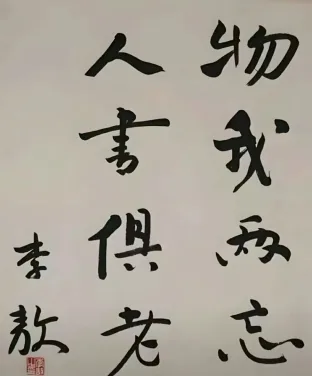 物我两忘
人書俱老
李敖